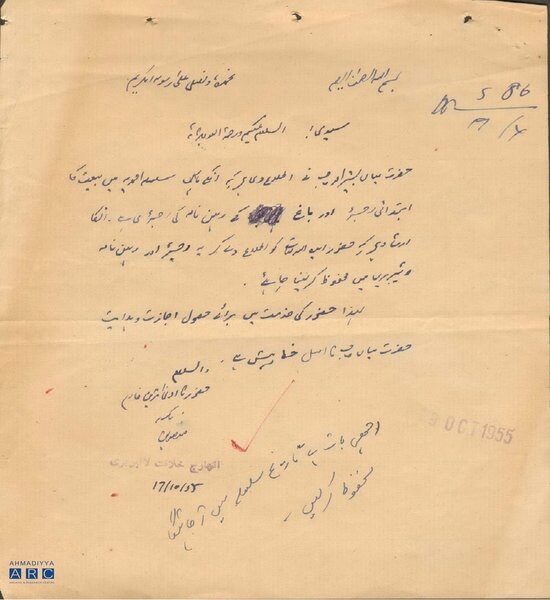 بسم اللہ الرحمٰن الرحیم نحمدہ و نصلی علی رسولہ الکریم
5 86
سیدی! السلام علیکم ورحمۃ اللہ وبرکاتہ
حضرت میاں بشیر احمد صاحب نے اطلاع دی ہے کہ انکے پاس سلسلہ احمدیہ میں بیعت کا
ابتدائی رجسٹر اور باغ کے رہن نامہ کی رجسٹری ہے۔ انکا
ارشاد ہے کہ حضور ایدہ اللہ تعالیٰ کو اطلاع دے کر یہ رجسٹر اور رہن نامہ
لائبریری میں محفوظ کر لینا چاہئے۔
لہذا حضور کی خدمت میں برائے حصول اجازت و ہدایت
حضرت میاں صاحب کا اصل خط پیش ہے۔ والسلام
حضور کا ادنیٰ ترین خادم
انچارج خلافت لائبریری
17/10/55
OCT 1955
اچھی بات ہے تاریخ سلسلہ میں آ جائیگا
محفوظ کر لیں
AHMADIYYA
ARC